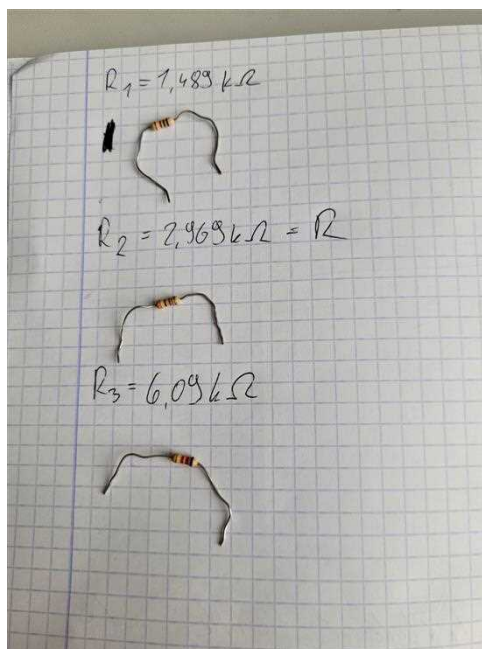 R1 = 1,489 kΩ
R2 = 2,969 kΩ = R
R3 = 6,09 kΩ